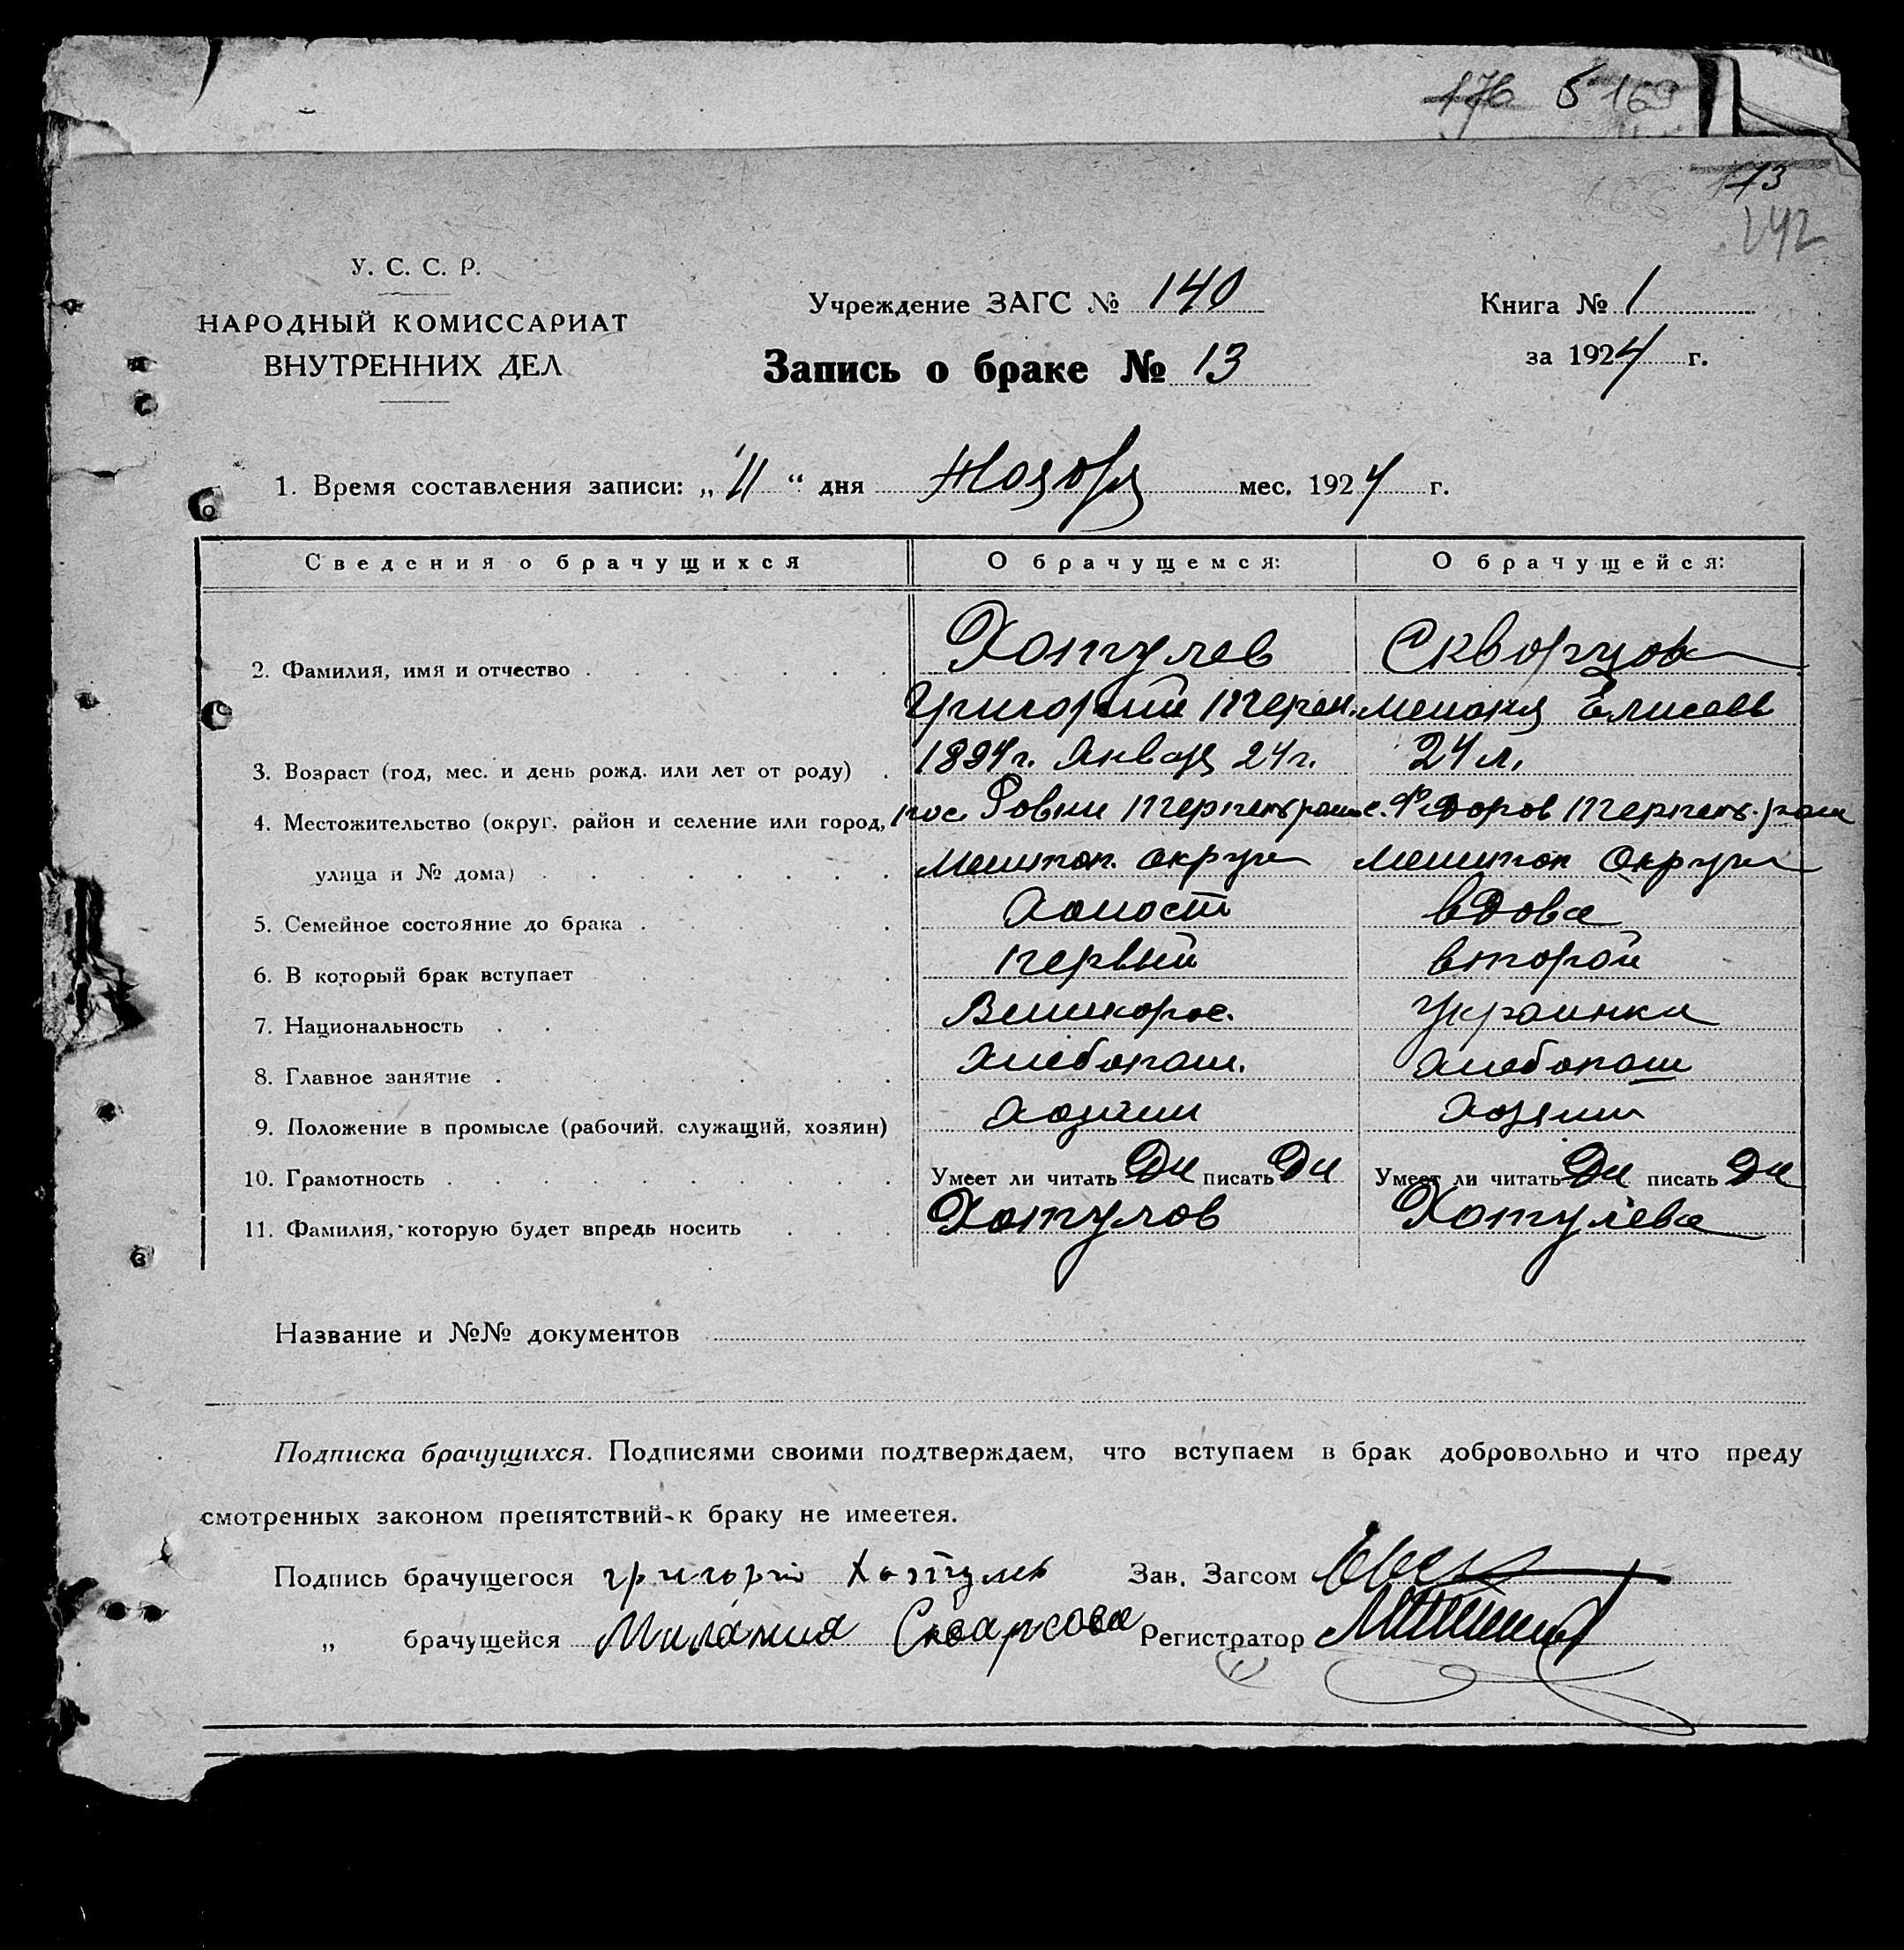 176 5 169
173
242
У. С. С. Р.
НАРОДНЫЙ КОМИССАРИАТ
ВНУТРЕННИХ ДЕЛ
Учреждение ЗАГС № 140
Запись о браке № 13
Книга № 1
за 1924 г.
1. Время составления записи: „ 11 “ дня Ноября мес. 1924 г.
Сведения о брачущихся О брачущемся: О брачущейся:
2. Фамилия, имя и отчество Хотулев Скворцова
Григорий Терен. Мелания Елисеев
3. Возраст (год, мес. и день рожд. или лет от роду) 1894 г. Января 24 г. 24 л.
4. Местожительство (округ, район и селение или город, пос. Ровни Терпень района с. Федоров Терпень. района
улица и № дома) Мелитоп. округа Мелитоп округа
5. Семейное состояние до брака Холост вдова
6. В который брак вступает первый второй
7. Национальность Великорос. Украинка
8. Главное занятие Хлебопаш. Хлебопаш
9. Положение в промысле (рабочий, служащий, хозяин) Хозяин Хозяин
10. Грамотность Умеет ли читать Да писать Да Умеет ли читать Да писать Да
11. Фамилия, которую будет впредь носить Хотулов Хотулева
Название и №№ документов
Подписка брачущихся. Подписями своими подтверждаем, что вступаем в брак добровольно и что преду
смотренных законом препятствий к браку не имеетея.
Подпись брачущегося григорий Хотулев Зав. Загсом
„ брачущейся Милания Скварсова Регистратор